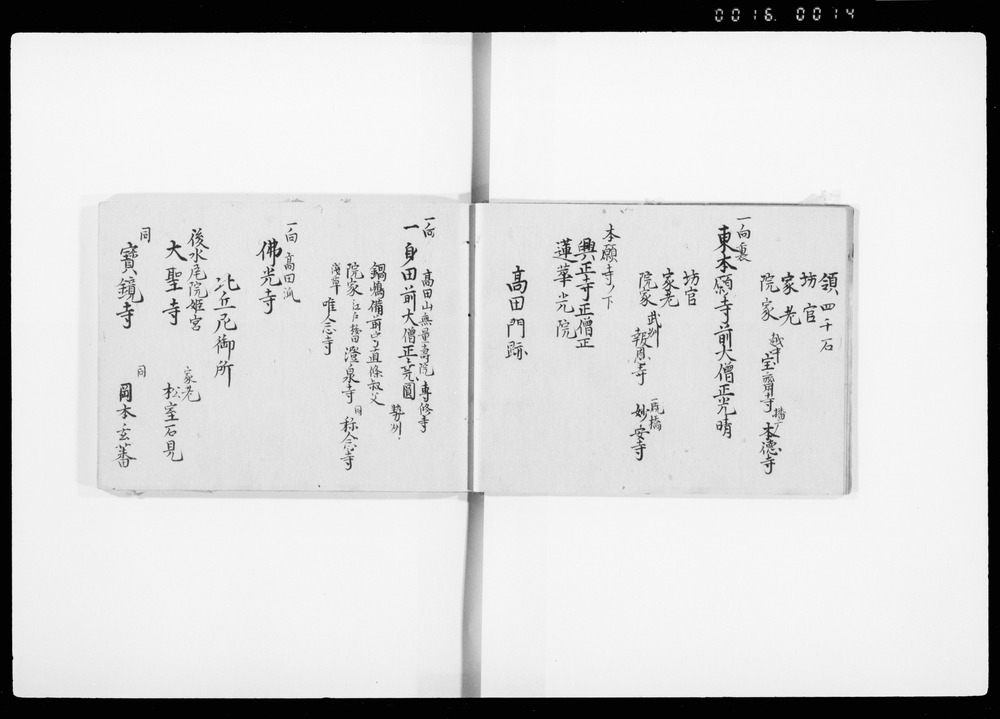 0016. 0014
領四千石
坊官
家老
院家 越中 宝齋寺 播戸 本徳寺
一向裏
東本願寺前大僧正光晴
坊官
家老
院家 武州 報恩寺 厩橋 妙安寺
本願寺ノ下
興正寺正僧正
蓮華光院
高田門跡
一向 高田山無量壽院 專修寺
一身田前大僧正尭圓 勢州
鍋嶋備前守直條叔父
院家 江戸 澄泉寺 同 称念寺
浅草 唯念寺
一向 高田派
佛光寺
比丘尼御所
後水尾院姫宮
大聖寺 家老 松室石見
同
寶鏡寺 同 岡本玄蕃